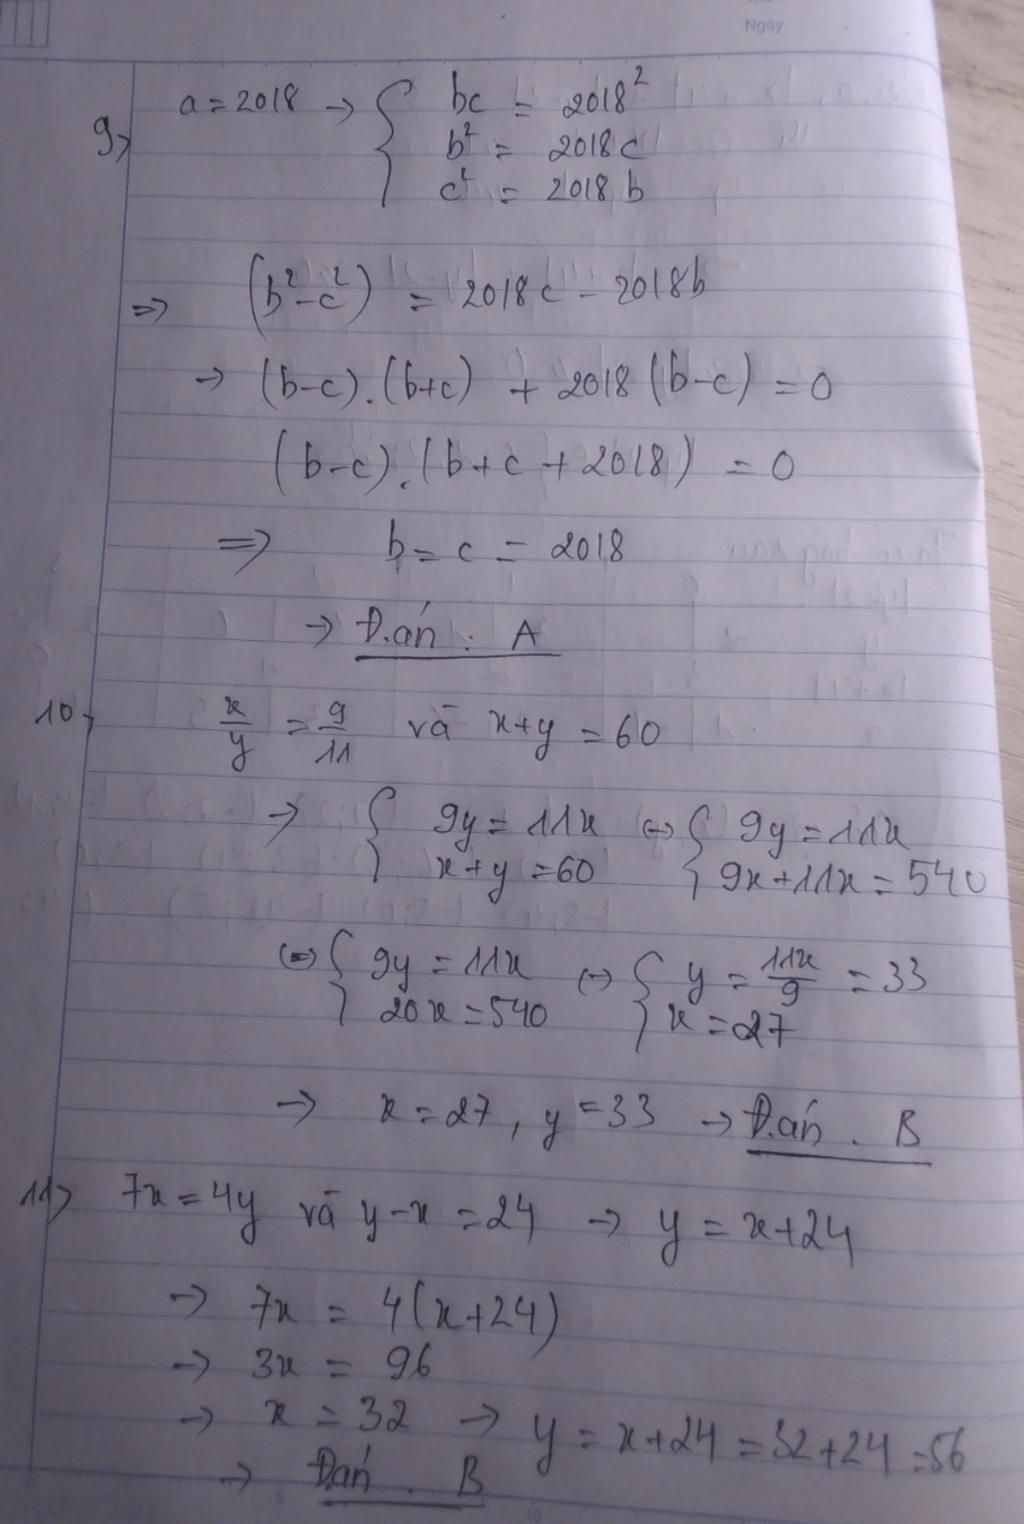 Ngày
9, a = 2018 → { bc = 2018²
b² = 2018c
c² = 2018b
⇒ (b² - c²) = 2018c - 2018b
→ (b-c).(b+c) + 2018(b-c) = 0
(b-c).(b+c+2018) = 0
⇒ b = c = 2018
→ Đ.án : A
10, x/y = 9/11 và x+y = 60
→ { 9y = 11x ⇔ { 9y = 11x
x+y = 60 9x+11x = 540
⇔ { 9y = 11x ⇔ { y = 11x/9 = 33
20x = 540 x = 27
→ x = 27, y = 33 → Đ.án . B
11, 7x = 4y và y-x = 24 → y = x+24
→ 7x = 4(x+24)
→ 3x = 96
→ x = 32 → y = x+24 = 32+24 = 56
→ Đ.án . B